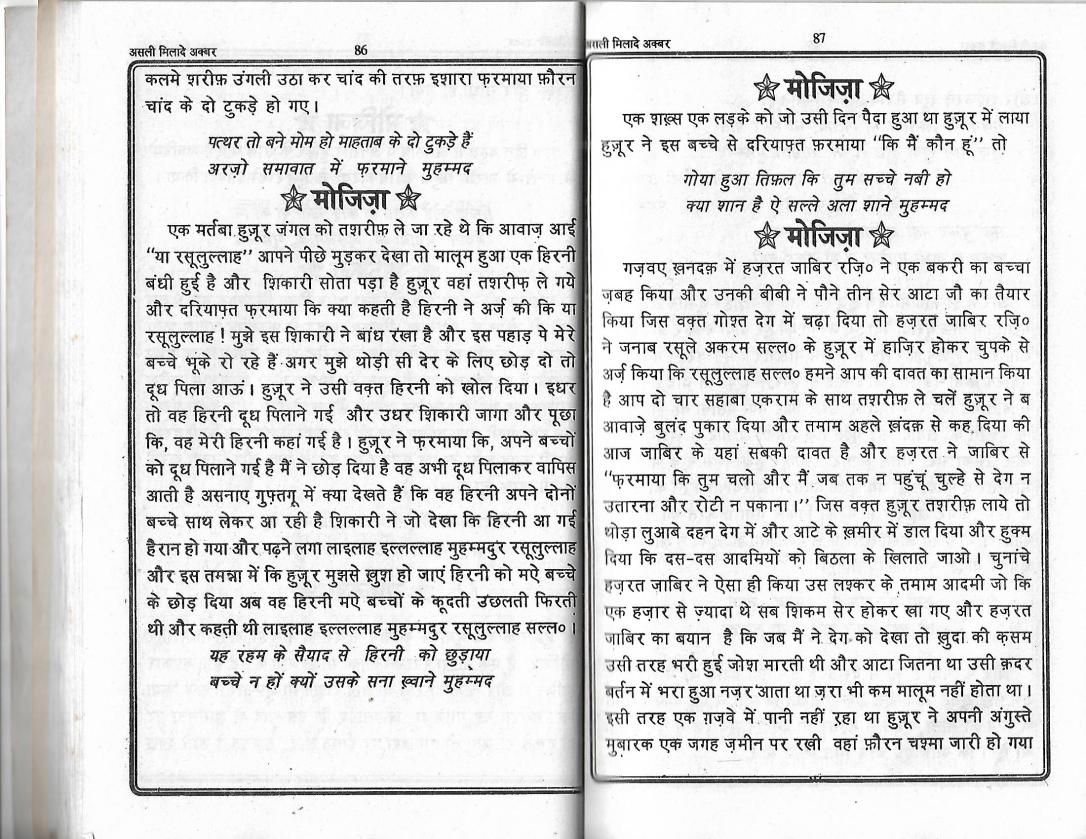 असली मिलादे अक्बर 86
कलमे शरीफ़ उंगली उठा कर चांद की तरफ़ इशारा फ़रमाया फ़ौरन
चांद के दो टुकड़े हो गए।
पत्थर तो बने मोम हो माहताब के दो टुकड़े हैं
अरज़ो समावात में फ़रमाने मुहम्मद
मोजिज़ा
एक मर्तबा हुज़ूर जंगल को तशरीफ़ ले जा रहे थे कि आवाज़ आई
“या रसूलुल्लाह” आपने पीछे मुड़कर देखा तो मालूम हुआ एक हिरनी
बंधी हुई है और शिकारी सोता पड़ा है हुज़ूर वहां तशरीफ़ ले गये
और दरियाफ़्त फ़रमाया कि क्या कहती है हिरनी ने अर्ज़ की कि या
रसूलुल्लाह ! मुझे इस शिकारी ने बांध रखा है और इस पहाड़ पे मेरे
बच्चे भूंके रो रहे हैं अगर मुझे थोड़ी सी देर के लिए छोड़ दो तो
दूध पिला आऊं। हुज़ूर ने उसी वक़्त हिरनी को खोल दिया। इधर
तो वह हिरनी दूध पिलाने गई और उधर शिकारी जागा और पूछा
कि, वह मेरी हिरनी कहां गई है। हुज़ूर ने फ़रमाया कि, अपने बच्चों
को दूध पिलाने गई है मैं ने छोड़ दिया है वह अभी दूध पिलाकर वापिस
आती है असनाए गुफ़्तगू में क्या देखते हैं कि वह हिरनी अपने दोनों
बच्चे साथ लेकर आ रही है शिकारी ने जो देखा कि हिरनी आ गई
हैरान हो गया और पढ़ने लगा लाइलाह इल्लल्लाह मुहम्मदुर रसूलुल्लाह
और इस तमन्ना में कि हुज़ूर मुझसे ख़ुश हो जाएं हिरनी को मऐ बच्चे
के छोड़ दिया अब वह हिरनी मऐ बच्चों के कूदती उछलती फिरती
थी और कहती थी लाइलाह इल्लल्लाह मुहम्मदुर रसूलुल्लाह सल्ल०।
यह रहम के सैयाद से हिरनी को छुड़ाया
बच्चे न हों क्यों उसके सना ख़्वाने मुहम्मद
असली मिलादे अक्बर 87
मोजिज़ा
एक शख़्स एक लड़के को जो उसी दिन पैदा हुआ था हुज़ूर में लाया
हुज़ूर ने इस बच्चे से दरियाफ़्त फ़रमाया “कि मैं कौन हूं” तो
गोया हुआ तिफ़ल कि तुम सच्चे नबी हो
क्या शान है ऐ सल्ले अला शाने मुहम्मद
मोजिज़ा
गज़वए ख़नदक़ में हज़रत जाबिर रज़ि० ने एक बकरी का बच्चा
ज़बह किया और उनकी बीबी ने पौने तीन सेर आटा जौ का तैयार
किया जिस वक़्त गोश्त देग में चढ़ा दिया तो हज़रत जाबिर रज़ि०
ने जनाब रसूले अकरम सल्ल० के हुज़ूर में हाज़िर होकर चुपके से
अर्ज़ किया कि रसूलुल्लाह सल्ल० हमने आप की दावत का सामान किया
है आप दो चार सहाबा एकराम के साथ तशरीफ़ ले चलें हुज़ूर ने ब
आवाज़े बुलंद पुकार दिया और तमाम अहले ख़ंदक़ से कह दिया की
आज जाबिर के यहां सबकी दावत है और हज़रत ने जाबिर से
“फ़रमाया कि तुम चलो और मैं जब तक न पहुंचूं चुल्हे से देग न
उतारना और रोटी न पकाना।” जिस वक़्त हुज़ूर तशरीफ़ लाये तो
थोड़ा लुआबे दहन देग में और आटे के ख़मीर में डाल दिया और हुक्म
दिया कि दस-दस आदमियों को बिठला के खिलाते जाओ। चुनांचे
हज़रत जाबिर ने ऐसा ही किया उस लश्कर के तमाम आदमी जो कि
एक हज़ार से ज्यादा थे सब शिकम सेर होकर खा गए और हज़रत
जाबिर का बयान है कि जब मैं ने देग को देखा तो ख़ुदा की क़सम
उसी तरह भरी हुई जोश मारती थी और आटा जितना था उसी क़दर
बर्तन में भरा हुआ नज़र आता था ज़रा भी कम मालूम नहीं होता था।
इसी तरह एक ग़ज़वे में पानी नहीं रहा था हुज़ूर ने अपनी अंगुस्ते
मुबारक एक जगह ज़मीन पर रखी वहां फ़ौरन चश्मा जारी हो गया